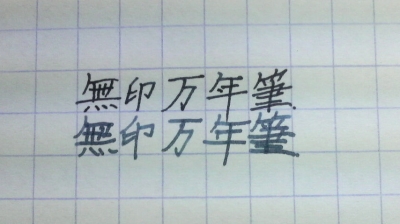 無印万年筆
無印万年筆